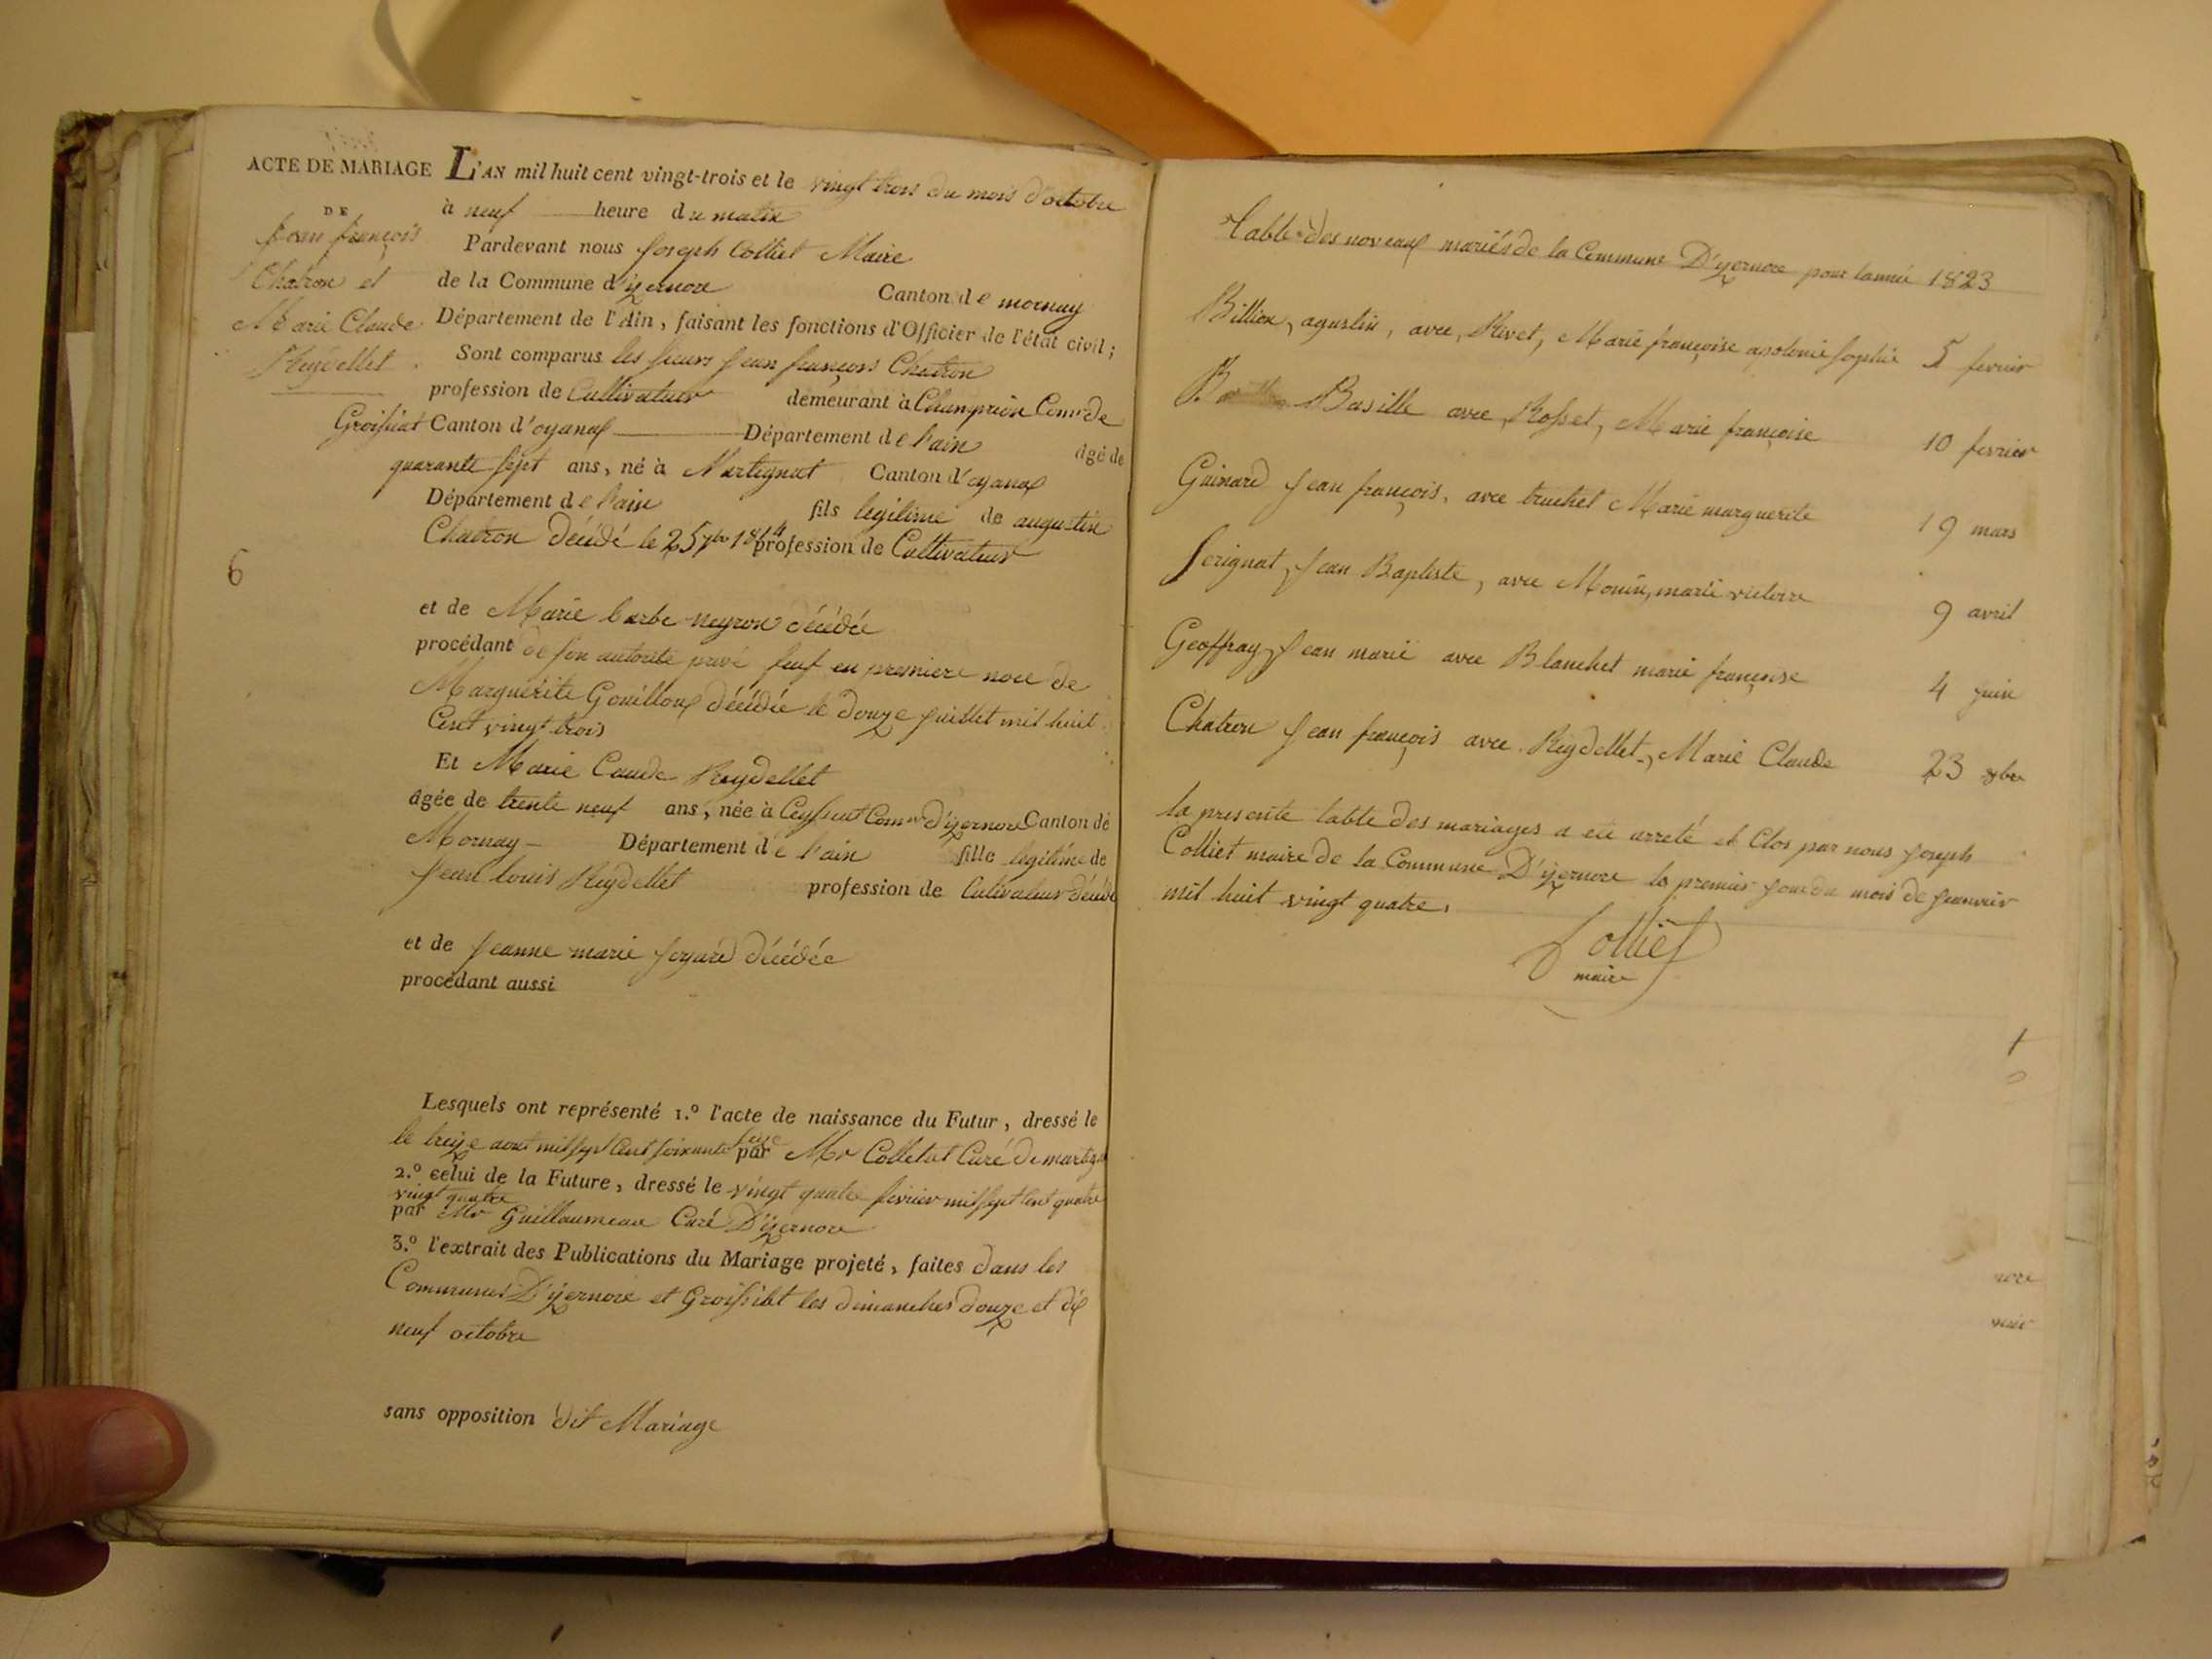 ACTE DE MARIAGE
DE
Jean françois
Chatron et
Marie Claude
Reydellet
6
L'AN mil huit cent vingt-trois et le vingt trois du mois d'octobre
à neuf heure du matin
Pardevant nous Joseph Colliet Maire
de la Commune d'izernore Canton de mornay
Département de l'Ain, faisant les fonctions d'Officier de l'état civil;
Sont comparus les sieurs Jean françois Chatron
profession de Cultivateur demeurant à Champrion Comne de
Groissiat Canton d'oyonax Département de l'ain âgé de
quarante sept ans, né à Martignat Canton d'oyonax
Département de l'ain fils légitime de augustin
Chatron décédé le 25 7bre 1814 profession de Cultivateur
et de Marie barbe neyron décédée
procédant de son autorité privé feuf en premiere noce de
Marguérite Gouilloux décédée le douze juillet mil huit
Cent vingt trois
Et Marie Caude Reydellet
âgée de trente neuf ans, née à Ceyssiat Comne d'izernore Canton de
Mornay Département de l'ain fille legitime de
Jean louis Reydellet profession de Cultivateur décédé
et de Jeanne marie décédée
procédant aussi
Lesquels ont représenté 1.º l'acte de naissance du Futur, dressé le
le treize aout mil sept Cent soixante seize par Mr Colletat Curé de martig
2.º celui de la Future, dressé le vingt quatre fevrier mil sept Cent quatre
vingt quatre
par Mr Guillaumeau Curé D'izernore
3.º l'extrait des Publications du Mariage projeté, faites dans les
Communes D'izernore et Groissiat les dimanches douze et dix
neuf octobre
sans opposition dit Mariage
Table des noveaux mariés de la Commune D'izernore pour lannée 1823
Billion, agustin, avec, Rivet, Marie françoise apolonie sophie 5 fevrier
Basille avec Rosset, Marie françoise 10 fevrier
Guinard Jean françois, avec truchet Marie marguerite 19 mars
Serignat, Jean Baptiste, avec Monin, marie victoire 9 avril
Geoffray, Jean marie avec Blanchet marie françoise 4 juin
Chatron Jean françois avec Reydellet, Marie Claude 23 8bre
la presente table des mariages a eté arreté et Clos par nous Joseph
Colliet maire de la Commune D'izernore le premier jour du mois de janvier
mil huit vingt quatre.
Colliet
maire